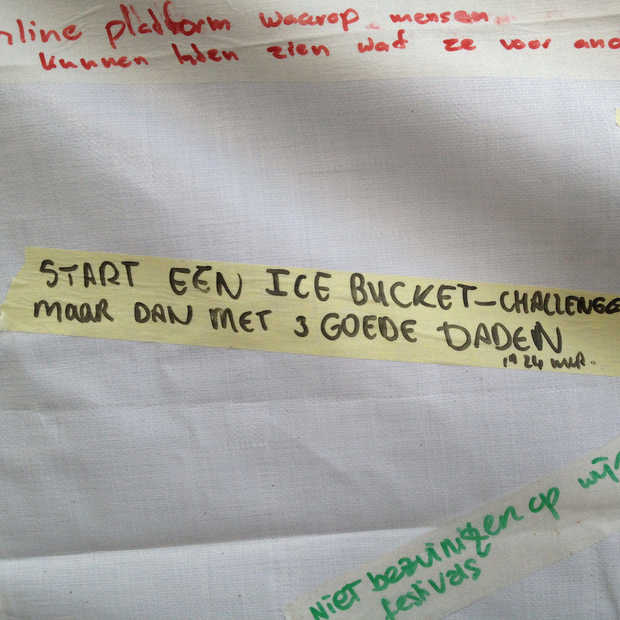 nline platform waarop mensen
kunnen laten zien wat ze voor ano
START EEN ICE BUCKET-CHALLENGE
MAAR DAN MET 3 GOEDE DADEN
in 24 uur.
NIET bezuinigen op wij
festivals